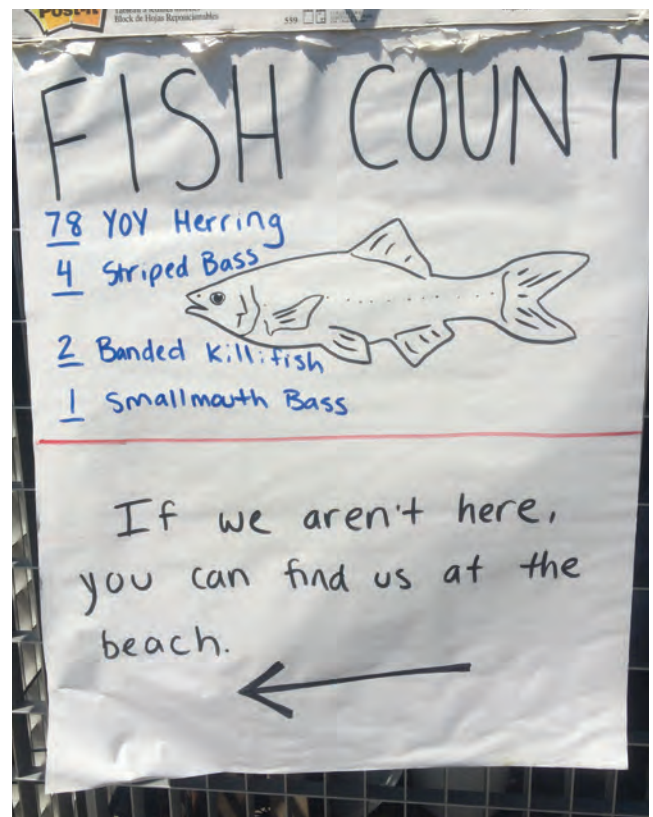 Post-it
Block de Hojas Reposicionables
559
FISH COUNT
78 YOY Herring
4 Striped Bass
2 Banded Killifish
1 Smallmouth Bass
If we aren't here,
you can find us at the
beach.